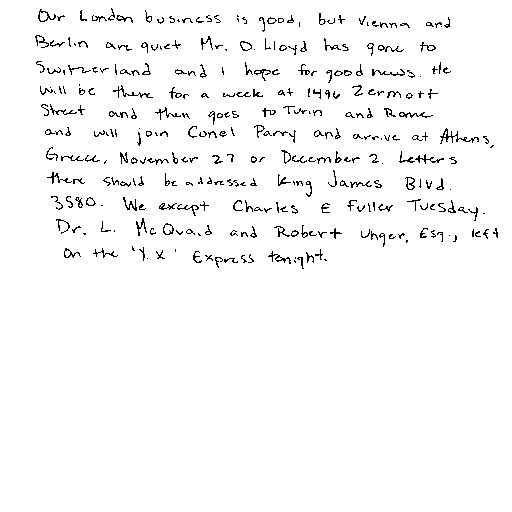 Our London business is good, but Vienna and
Berlin are quiet Mr. D. Lloyd has gone to
Switzerland and I hope for good news. He
will be there for a week at 1496 Zermott
Street and then goes to Turin and Rome
and will join Conel Parry and arrive at Athens,
Greece, November 27 or December 2. Letters
there should be addressed King James Blvd.
3580. We except Charles E Fuller Tuesday.
Dr. L. McQuaid and Robert Unger, Esq., left
on the 'Y.X' Express tonight.